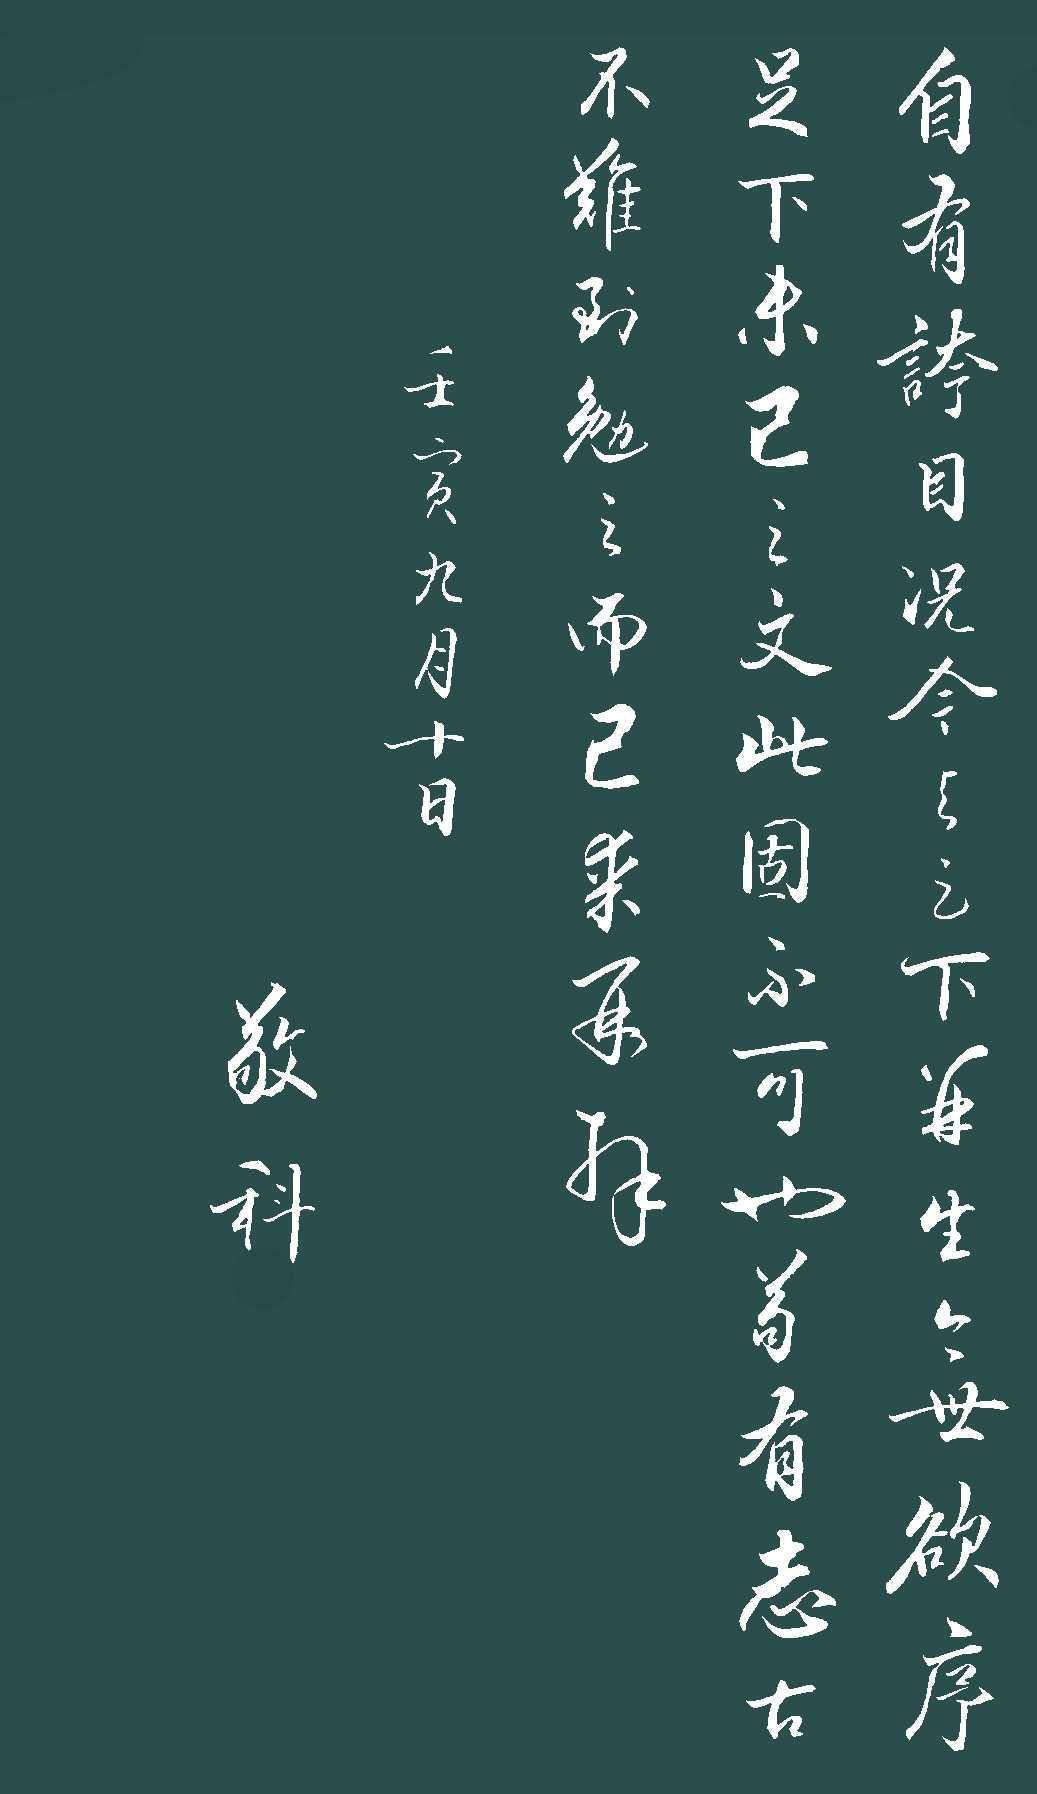 自有誇目況今与足下並生今世欲序
足下未已之文此固不可也苟有志古
不難到勉之而已某再拜
壬寅九月十日
敬科